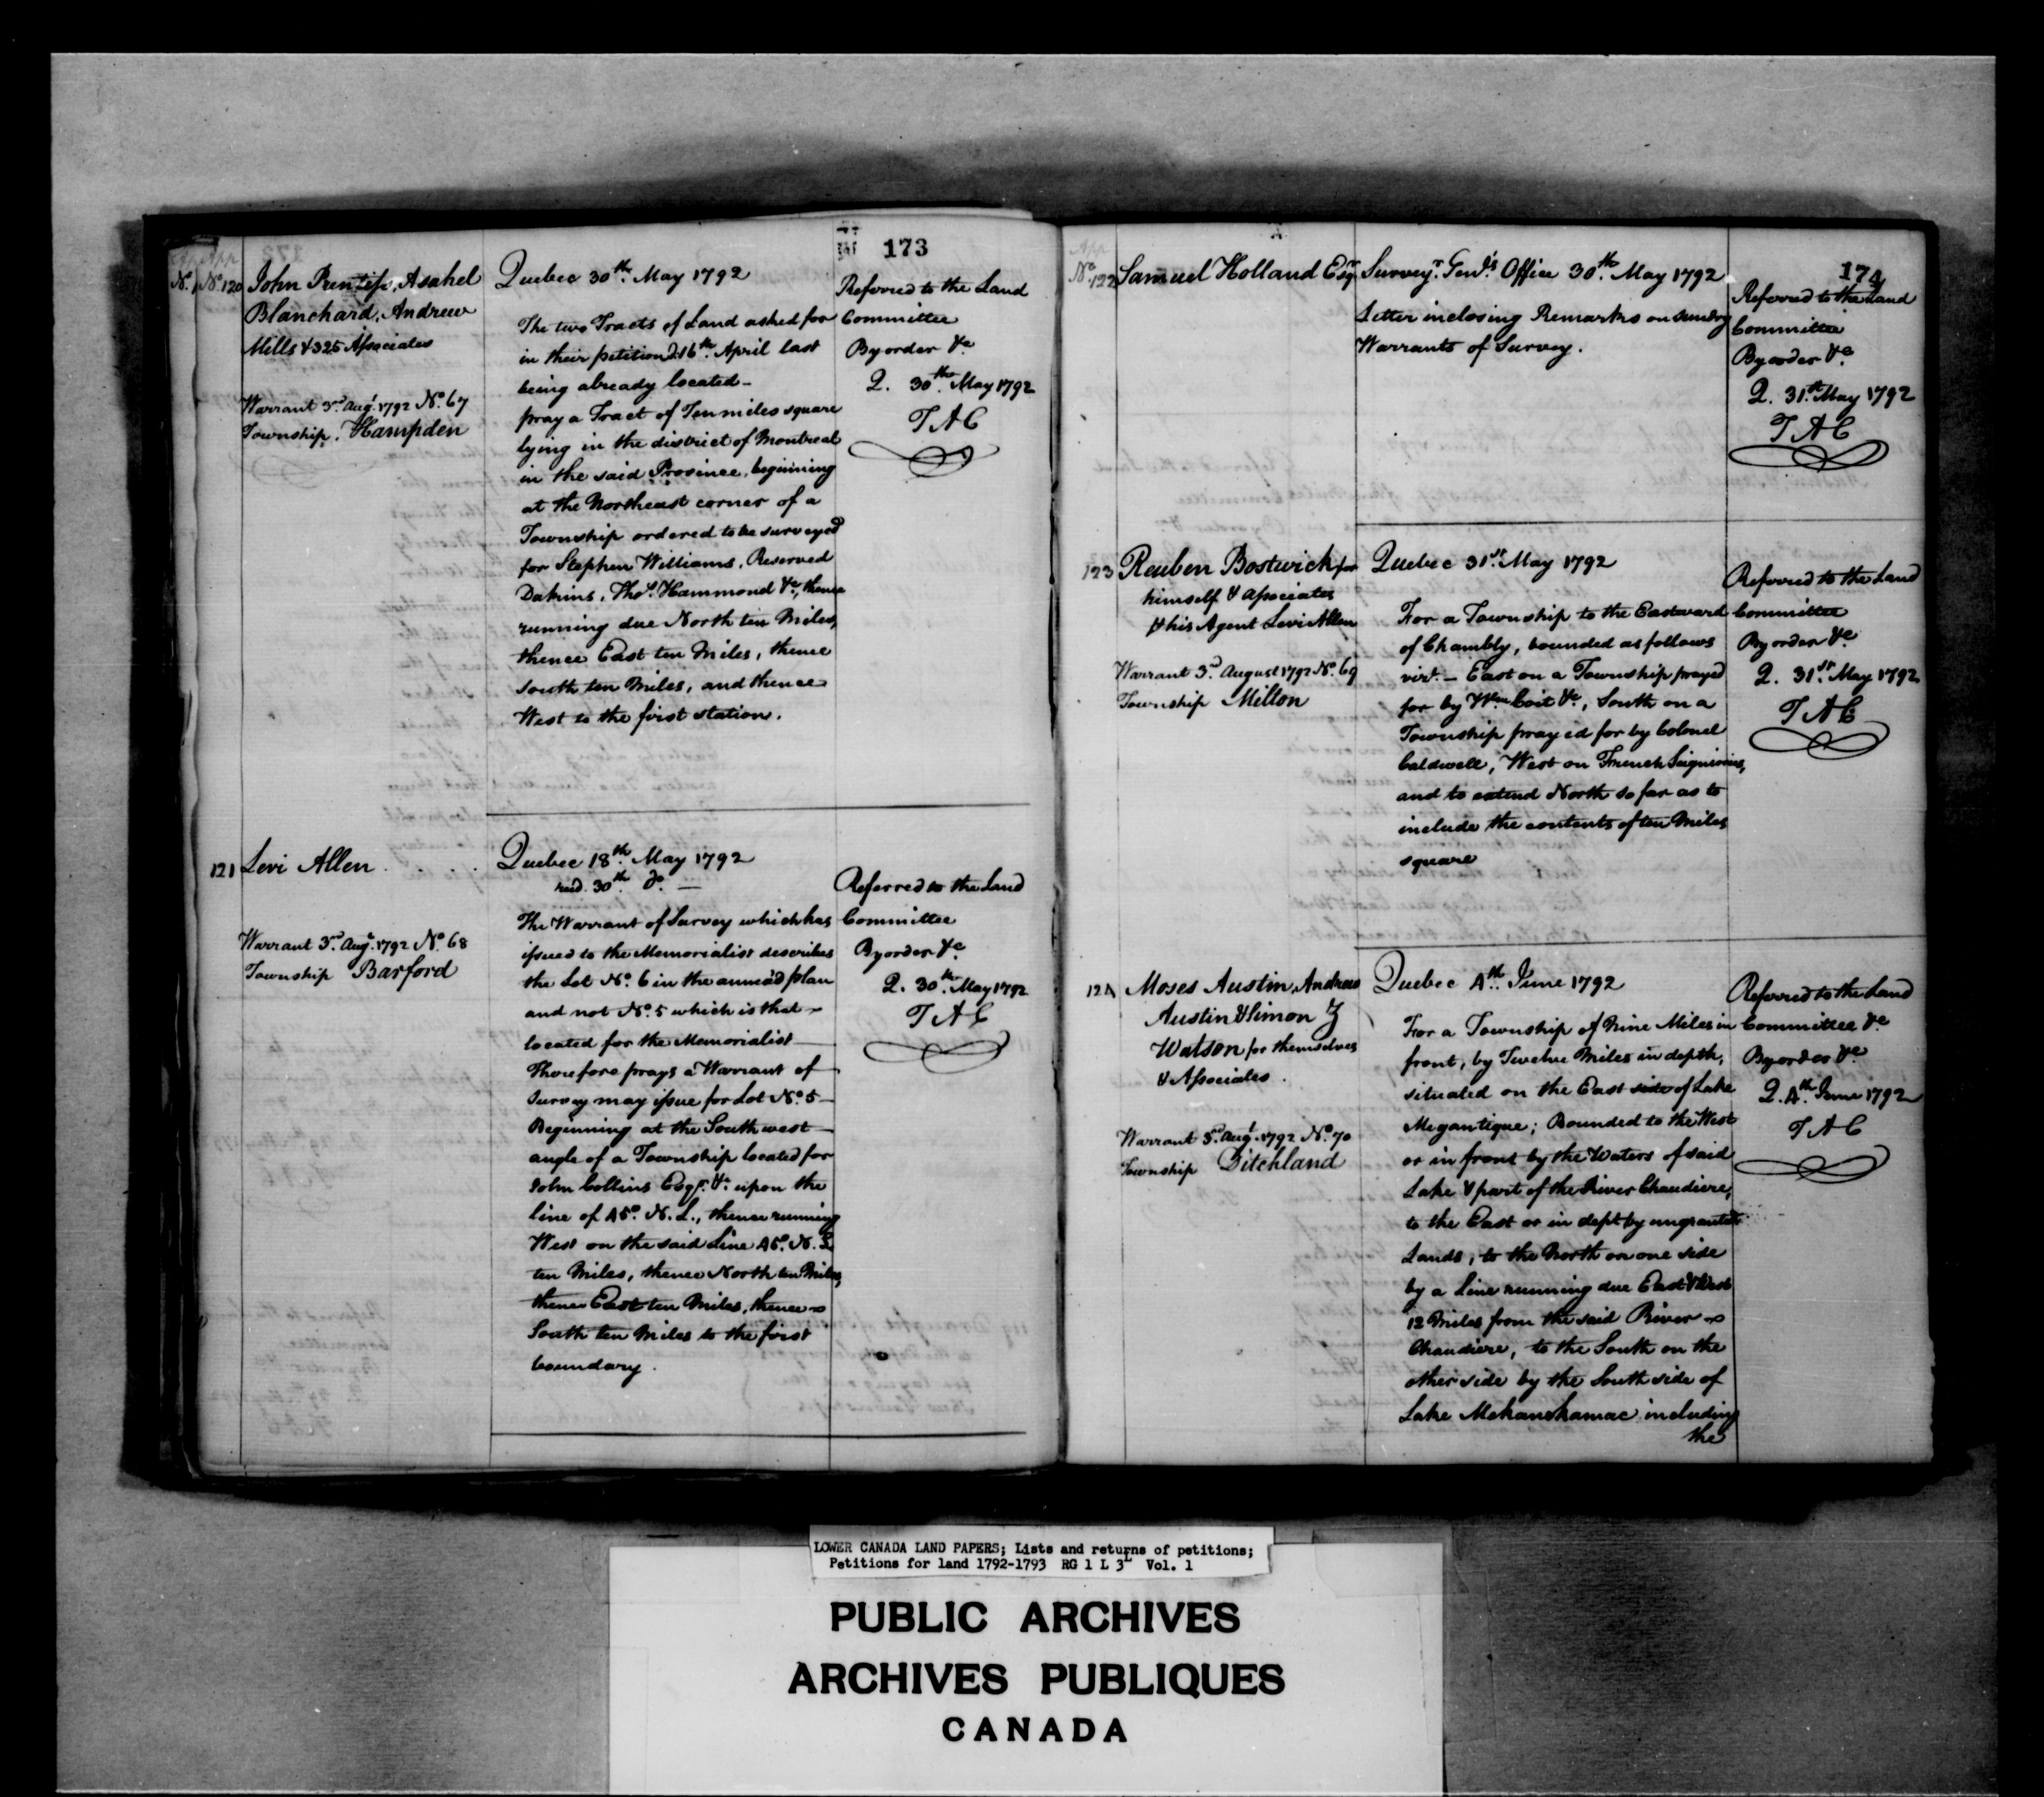 173
No. 120 John Prentiss, Asahel
Blanchard, Andrew
Mills & 325 Associates
Warrant 3rd Augt. 1792 No. 67
Township. Hampden
Quebec 30th May 1792
The two Tracts of Land asked for
in their petition 16th April last
being already located -
pray a Tract of Ten miles square
lying in the district of Montreal
in the said Province, beginning
at the Northeast corner of a
Township ordered to be surveyed
for Stephen Williams, Reserved
Dakins, Thos. Hammond &c, thence
running due North ten Miles,
thence East ten Miles, thence
South ten Miles, and thence
West to the first station.
Referred to the Land
Committee
By order &c.
Q. 30th May 1792
TAC
121 Levi Allen . . . .
Warrant 3rd Augt. 1792 No. 68
Township Barford
Quebec 18th May 1792
recd. 30th do. —
The Warrant of Survey which has
issued to the Memorialist describes
the Lot No. 6 in the annex'd plan
and not No. 5 which is that
located for the Memorialist —
Therefore prays a Warrant of
Survey may issue for Lot No. 5 —
Beginning at the Southwest —
angle of a Township located for
John Collins Esqr. &c. upon the
line of 45o. N. L., thence running
West on the said Line 45o. N. L.
ten Miles, thence North ten Miles,
thence East ten Miles, thence
South ten Miles to the first
boundary.
Referred to the Land
Committee
By order &c.
Q. 30th May 1792
TAC
174
No. 122 Samuel Holland Esqr.
Surveyr. Genl's Office 30th May 1792
Letter inclosing Remarks on sundry
Warrants of Survey.
Referred to the Land
Committee
By order &c.
Q. 31st May 1792
TAC
123 Reuben Bostwick for
himself & Associates
& his Agent Levi Allen
Warrant 3rd August 1792 No. 69
Township Milton
Quebec 31st May 1792
For a Township to the Eastward
of Chambly, bounded as follows
vizt. — East on a Township prayed
for by Wm. Coit &c, South on a
Township prayed for by Colonel
Caldwell, West on French Seigniories,
and to extend North so far as to
include the contents of ten Miles
square
Referred to the Land
Committee
By order &c.
Q. 31st May 1792
TAC
124 Moses Austin, Andrew
Austin & Simon Z
Watson for themselves
& Associates.
Warrant 3rd Augt. 1792 No. 70
Township Ditchland
Quebec 4th June 1792
For a Township of Nine Miles in
front, by Twelve Miles in depth,
situated on the East side of Lake
Megantique; Bounded to the West
or in front by the Waters of said
Lake & part of the River Chaudiere,
to the East or in dept by ungranted
Lands, to the North on one side
by a Line running due East & West
12 Miles from the said River
Chaudiere, to the South on the
other side by the South side of
Lake Mekanshamac including
the
Referred to the Land
Committee &c
By order &c
Q. 4th June 1792
TAC
LOWER CANADA LAND PAPERS; Lists and returns of petitions;
Petitions for land 1792-1793 RG 1 L 3L Vol. 1
PUBLIC ARCHIVES
ARCHIVES PUBLIQUES
CANADA